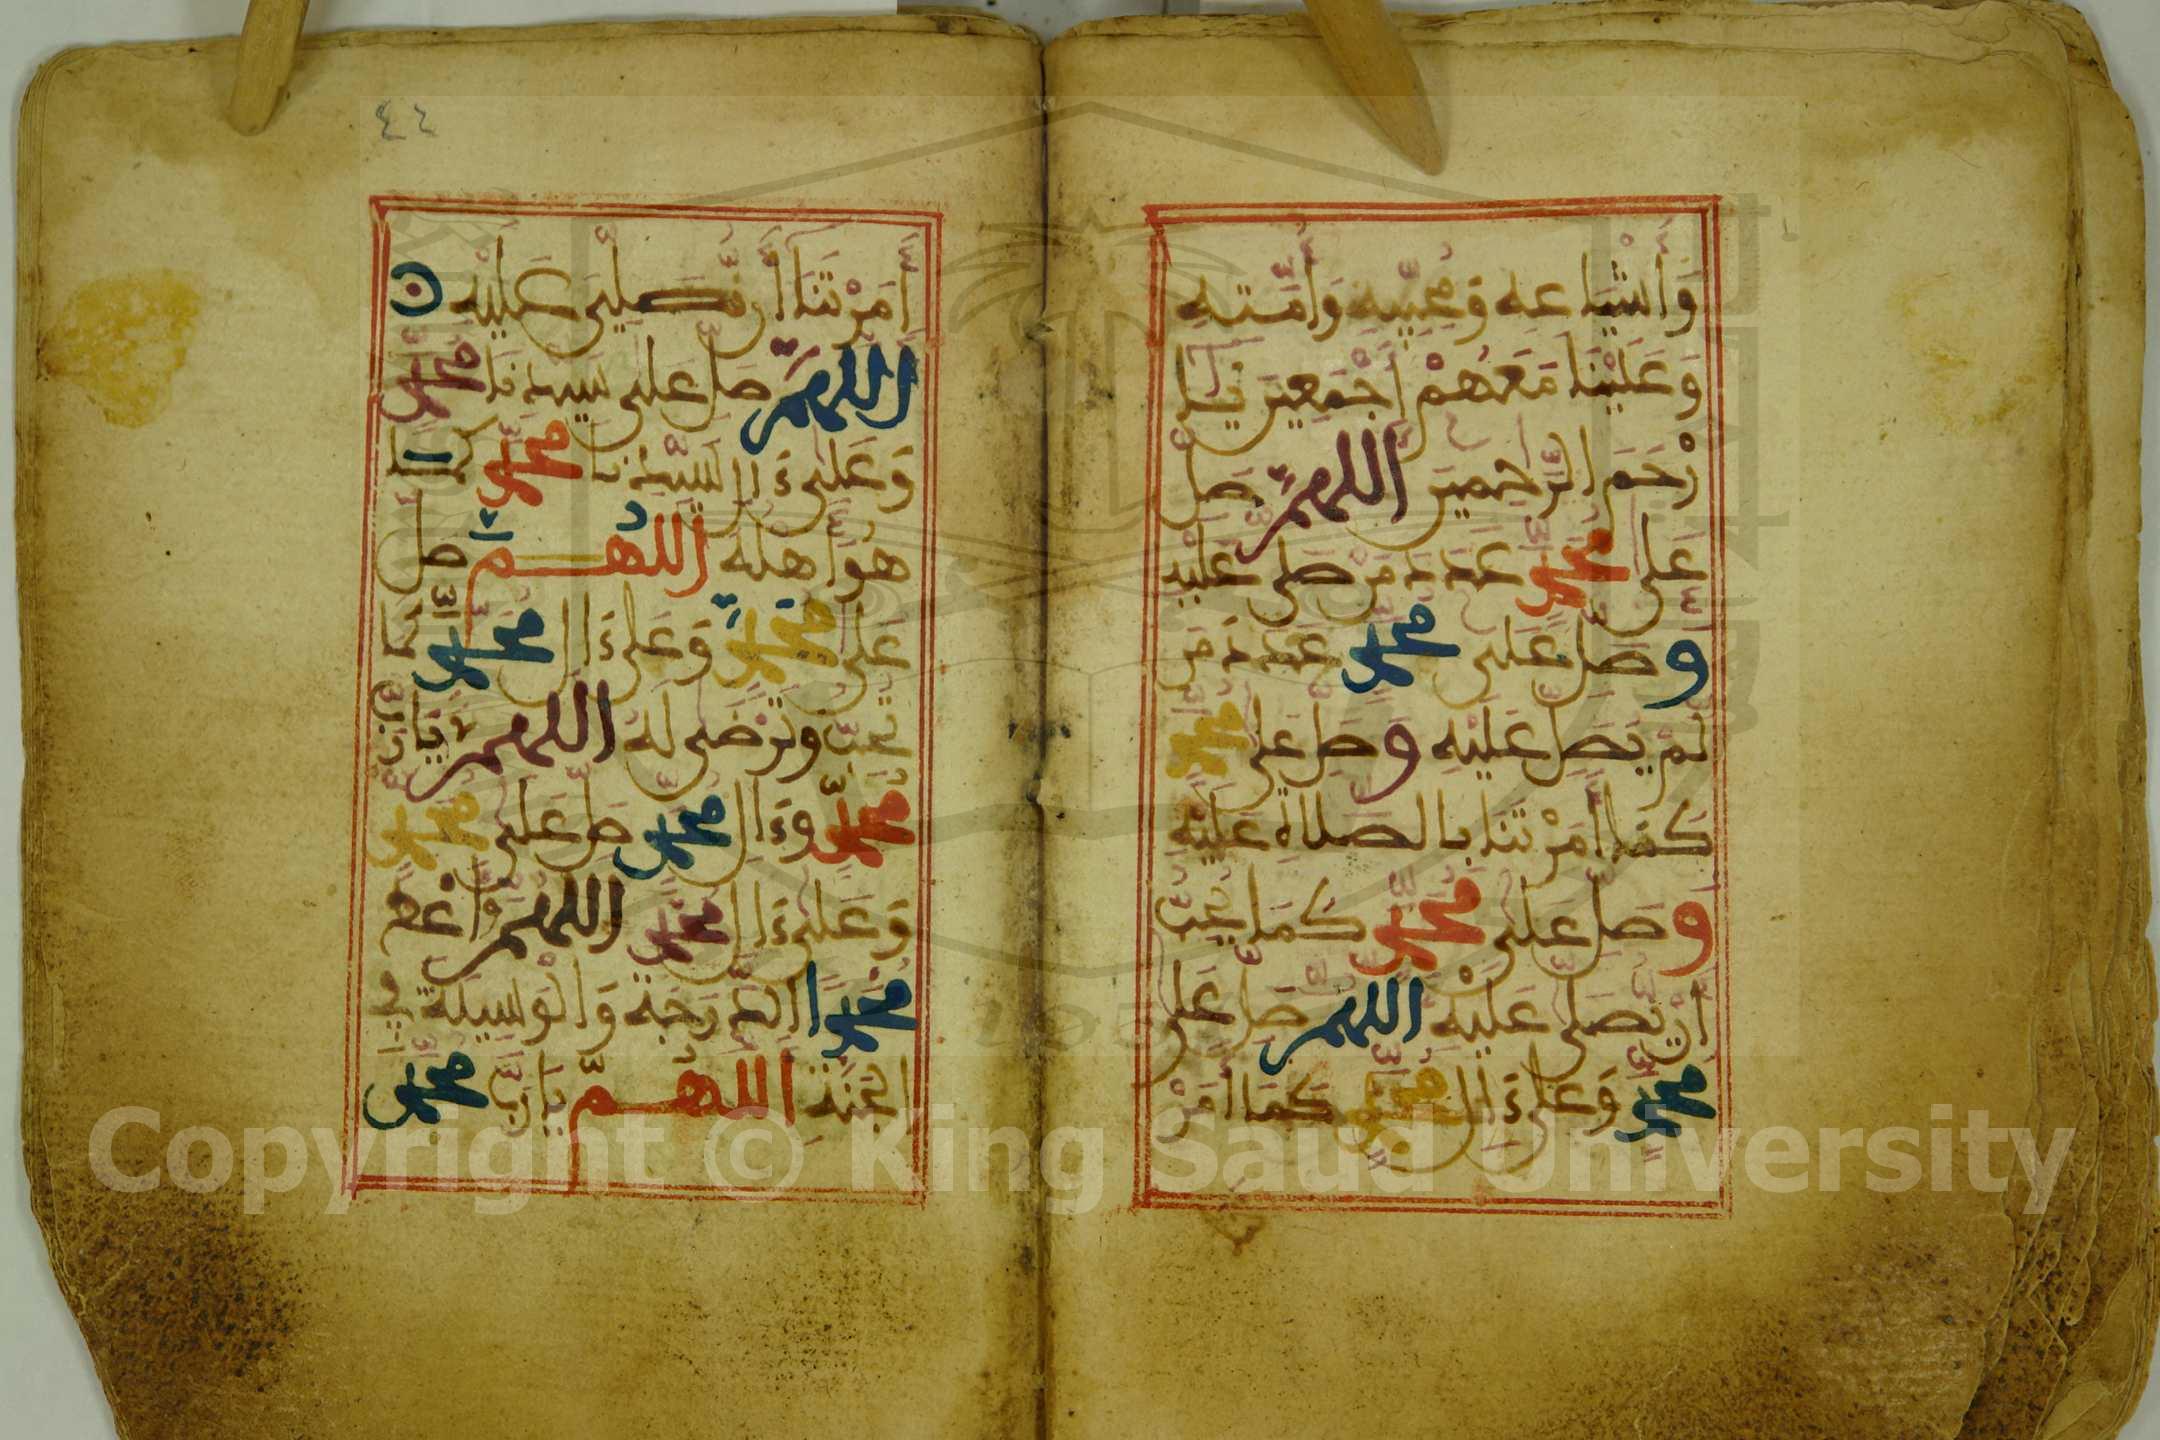 وَأَشْيَاعِهِ وَمُحِبِّيهِ وَأُمَّتِهِ
وَعَلَيْنَا مَعَهُمْ أَجْمَعِينَ يَا أَ
رْحَمَ الرَّاحِمِينَ اللَّهُمَّ صَلِّ
عَلَى مُحَمَّدٍ عَدَدَ مَنْ صَلَّى عَلَيْهِ
وَصَلِّ عَلَى مُحَمَّدٍ عَدَدَ مَن
لَمْ يُصَلِّ عَلَيْهِ وَصَلِّ عَلَى مُحَمَّدٍ
كَمَا أَمَرْتَنَا بِالصَّلَاةِ عَلَيْهِ
وَصَلِّ عَلَى مُحَمَّدٍ كَمَا تُحِبُّ
أَنْ يُّصَلَّى عَلَيْهِ اللَّهُمَّ صَلِّ عَلَى
مُحَمَّدٍ وَعَلَى ءَالِ مُحَمَّدٍ كَمَا أَمَرْ
٤٤
أَمَرْتَنَا أَن نُّصَلِّيَ عَلَيْهِ
اللَّهُمَّ صَلِّ عَلَى سَيِّدِنَا مُحَمَّدٍ
وَعَلَى ءَالِ سَيِّدِنَا مُحَمَّدٍ كَمَا
هُوَ أَهْلُهُ اللَّهُمَّ صَلِّ
عَلَى مُحَمَّدٍ وَعَلَى ءَالِ مُحَمَّدٍ كَمَا
تُحِبُّ وَتَرْضَى لَهُ اللَّهُمَّ يَا رَبَّ
مُحَمَّدٍ وَءَالِ مُحَمَّدٍ صَلِّ عَلَى مُحَمَّدٍ
وَعَلَى ءَالِ مُحَمَّدٍ اللَّهُمَّ وَأَعْطِ
مُحَمَّدًا الدَّرَجَةَ وَالْوَسِيلَةَ فِي
الْجَنَّةِ اللَّهُمَّ يَا رَبَّ مُحَمَّدٍ
Copyright © King Saud University